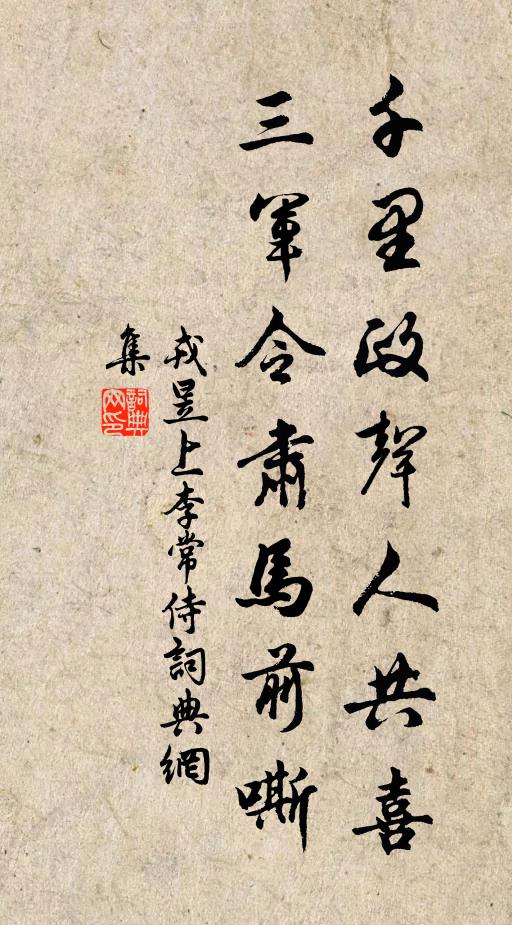 千里政聲人共喜
三軍令肅馬前嘶
戎昱上李常侍詞典網
集
詞典網印